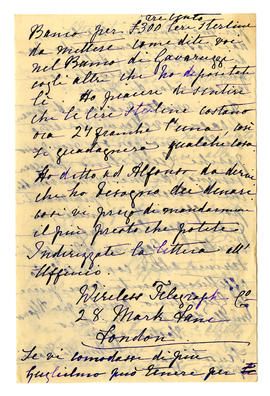 trecento
Banco per £300 lire sterline
da mettere come dite voi
nel Banco di
cogli altri che ho depositati
lì Ho piacere di sentire
che le lire sterline costano
ora 27 franchi l'una, così
si guadagnerà qualche cosa.
Ho ditto ad Alfonso da dirvi
che ho bisogno dei denari
così vi prego di mandarmeli
il più presto che potete
Indirizzate la lettera all'
Ufficio
Wireless Telegraph Co
28 Mark Lane
London
Se vi comodasse di più
Guglielmo può tenere per